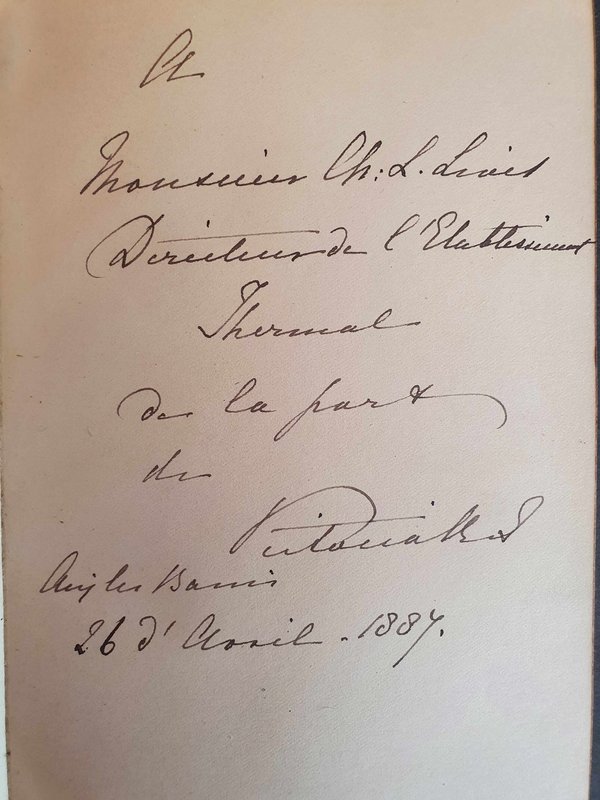 A
Monsieur Ch: L. Livet
Directeur de l'Etablissement
Thermal
de la part
de
Victoria R I
Aix les Bains
26 d'Avril - 1887.